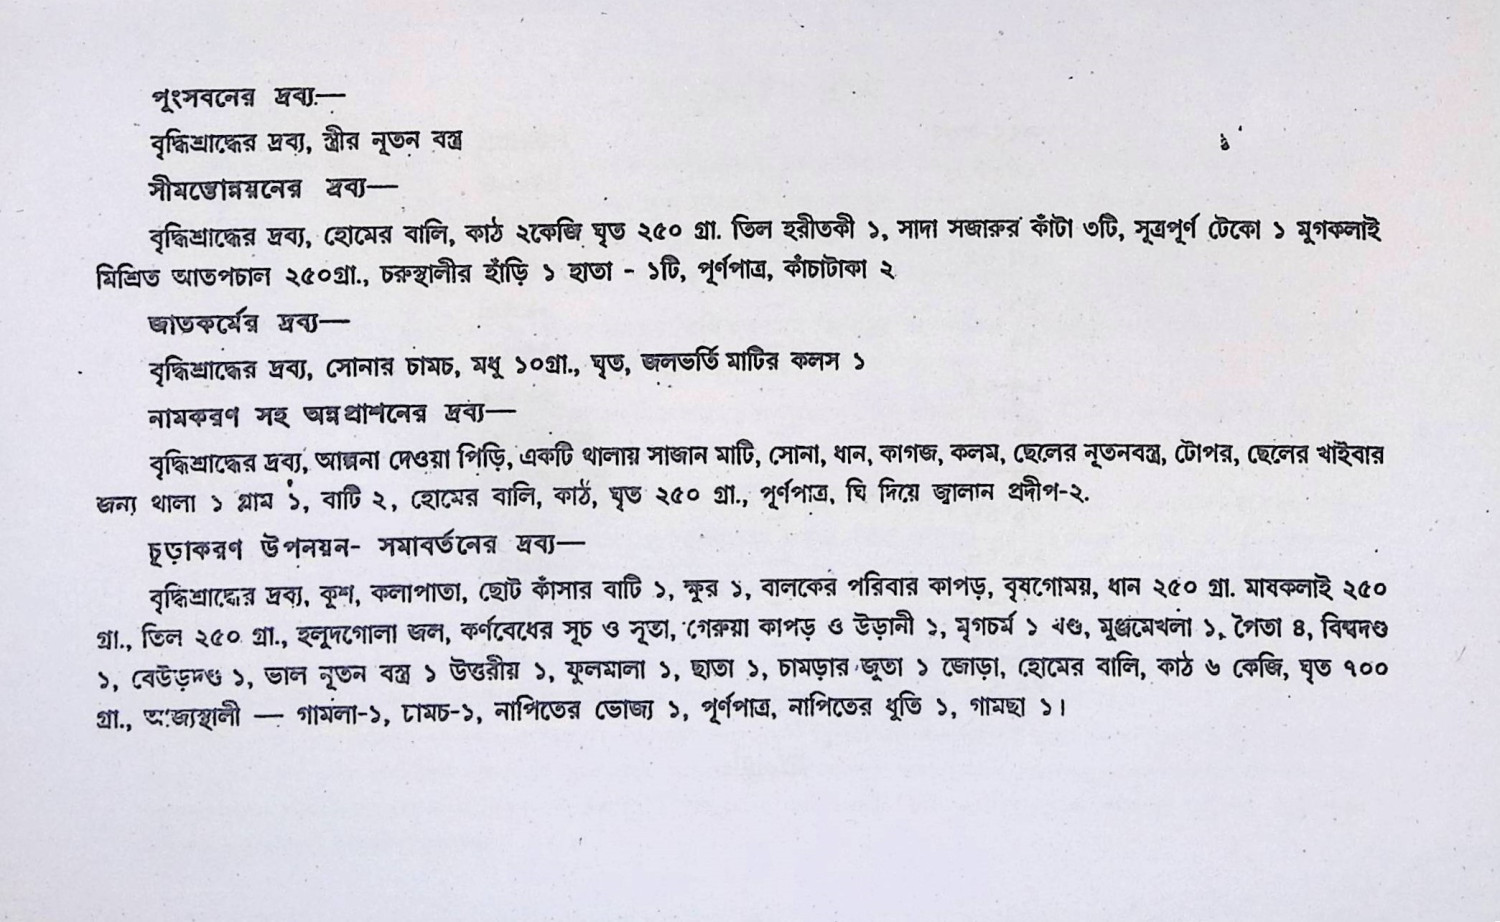 পুংসবনের দ্রব্য—
বৃদ্ধিশ্রাদ্ধের দ্রব্য, স্ত্রীর নূতন বস্ত্র
সীমন্তোন্নয়নের দ্রব্য—
বৃদ্ধিশ্রাদ্ধের দ্রব্য, হোমের বালি, কাঠ ২কেজি ঘৃত ২৫০ গ্রা. তিল হরীতকী ১, সাদা সজারুর কাঁটা ৩টি, সূত্রপূর্ণ টেকো ১ মুগকলাই
মিশ্রিত আতপচাল ২৫০গ্রা., চরুস্থালীর হাঁড়ি ১ হাতা - ১টি, পূর্ণপাত্র, কাঁচাটাকা ২
জাতকর্মের দ্রব্য—
বৃদ্ধিশ্রাদ্ধের দ্রব্য, সোনার চামচ, মধু ১০গ্রা., ঘৃত, জলভর্তি মাটির কলস ১
নামকরণ সহ অন্নপ্রাশনের দ্রব্য—
বৃদ্ধিশ্রাদ্ধের দ্রব্য, আল্পনা দেওয়া পিঁড়ি, একটি থালায় সাজান মাটি, সোনা, ধান, কাগজ, কলম, ছেলের নূতনবস্ত্র, টোপর, ছেলের খাইবার
জন্য থালা ১ গ্লাস ১, বাটি ২, হোমের বালি, কাঠ, ঘৃত ২৫০ গ্রা., পূর্ণপাত্র, ঘি দিয়ে জ্বালান প্রদীপ-২.
চূড়াকরণ উপনয়ন- সমাবর্তনের দ্রব্য—
বৃদ্ধিশ্রাদ্ধের দ্রব্য, কুশ, কলাপাতা, ছোট কাঁসার বাটি ১, ক্ষুর ১, বালকের পরিবার কাপড়, বৃষগোময়, ধান ২৫০ গ্রা. মাষকলাই ২৫০
গ্রা., তিল ২৫০ গ্রা., হলুদগোলা জল, কর্ণবেধের সূচ ও সূতা, গেরুয়া কাপড় ও উড়ানী ১, মৃগচর্ম ১ খণ্ড, মুঞ্জমেখলা ১, পৈতা ৪, বিল্বদণ্ড
১, বেউড়দণ্ড ১, ভাল নূতন বস্ত্র ১ উত্তরীয় ১, ফুলমালা ১, ছাতা ১, চামড়ার জুতা ১ জোড়া, হোমের বালি, কাঠ ৬ কেজি, ঘৃত ৭০০
গ্রা., আজ্যস্থালী — গামলা-১, চামচ-১, নাপিতের ভোজ্য ১, পূর্ণপাত্র, নাপিতের ধুতি ১, গামছা ১।